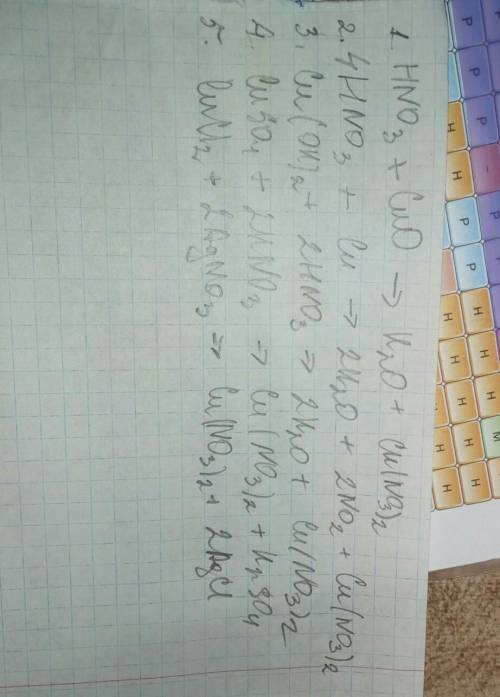 1. HNO3 + CuO → H2O + Cu(NO3)2
2. 4HNO3 + Cu → 2H2O + 2NO2 + Cu(NO3)2
3. Cu(OH)2 + 2HNO3 → 2H2O + Cu(NO3)2
4. CuSO4 + 2HNO3 → Cu(NO3)2 + H2SO4
5. CuCl2 + 2AgNO3 → Cu(NO3)2 + 2AgCl
P P - H
H H P P
H H H H
H H H H
M H H